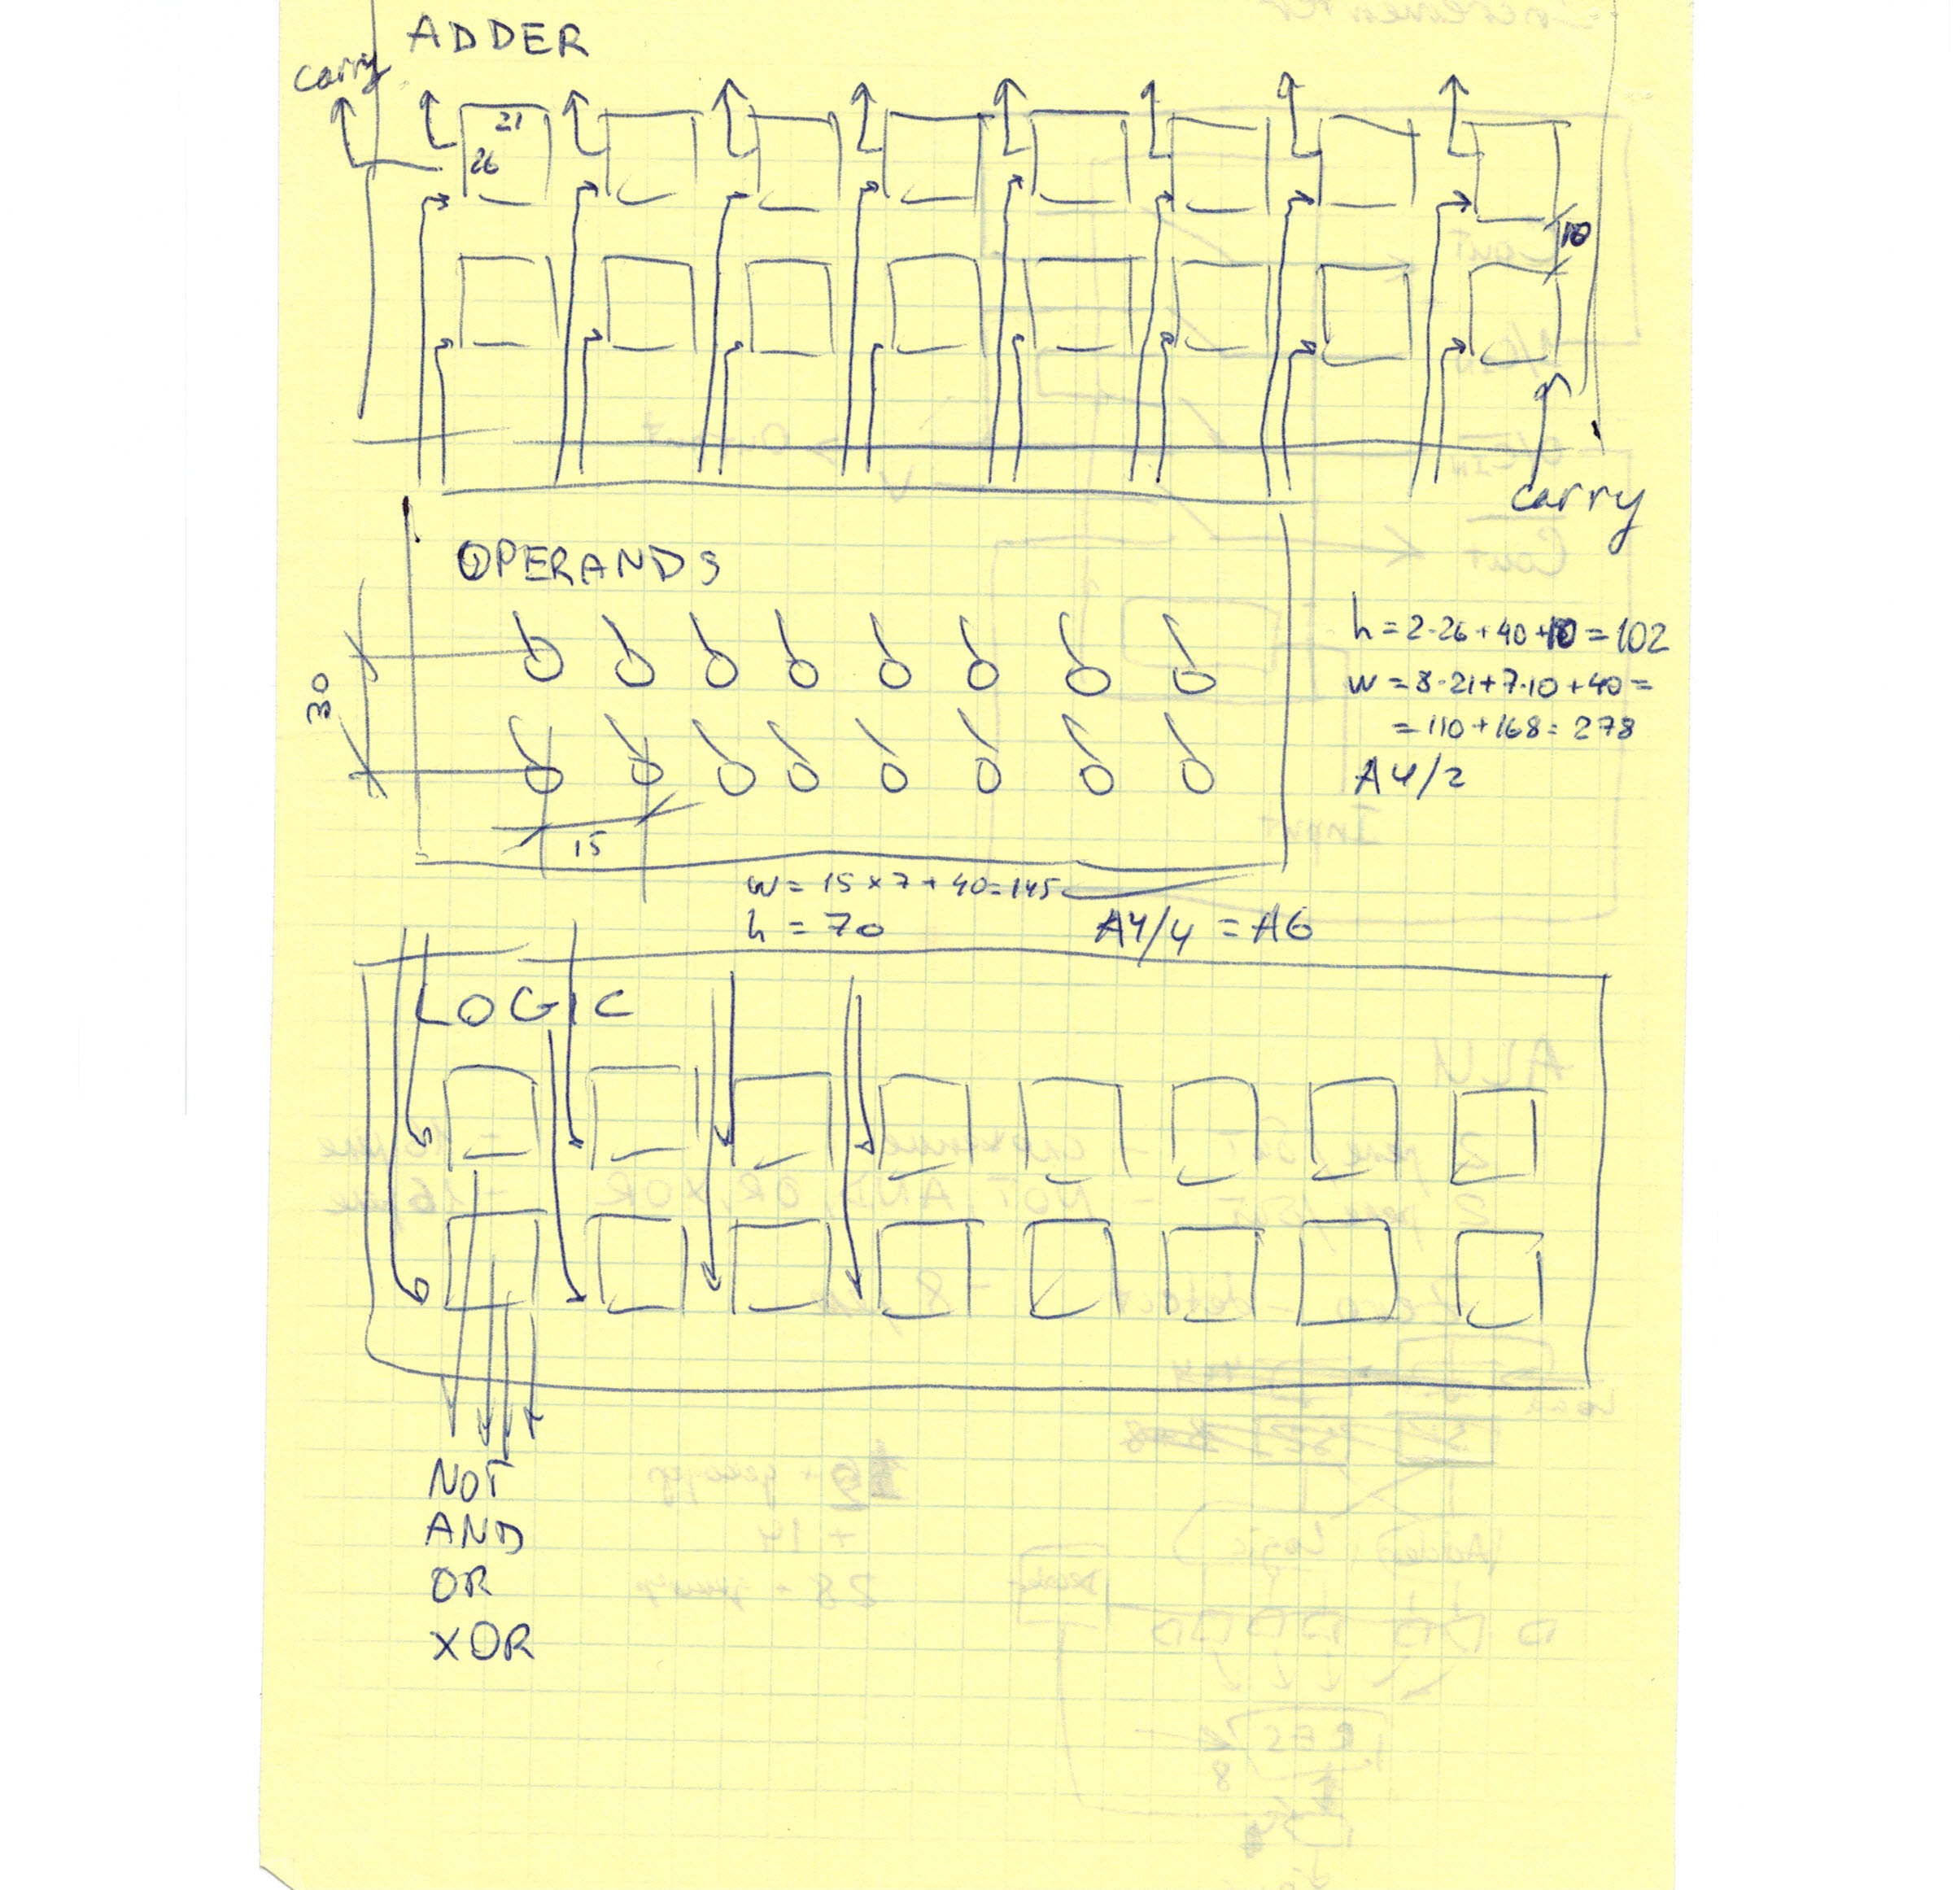 ADDER
carry
21
26
10
carry
OPERANDS
30
15
h = 2·26 + 40 + 10 = 102
w = 8·21 + 7·10 + 40 =
= 110 + 168 = 278
A4/2
w = 15 x 7 + 40 = 145
h = 70
A4/4 = A6
LOGIC
NOT
AND
OR
XOR